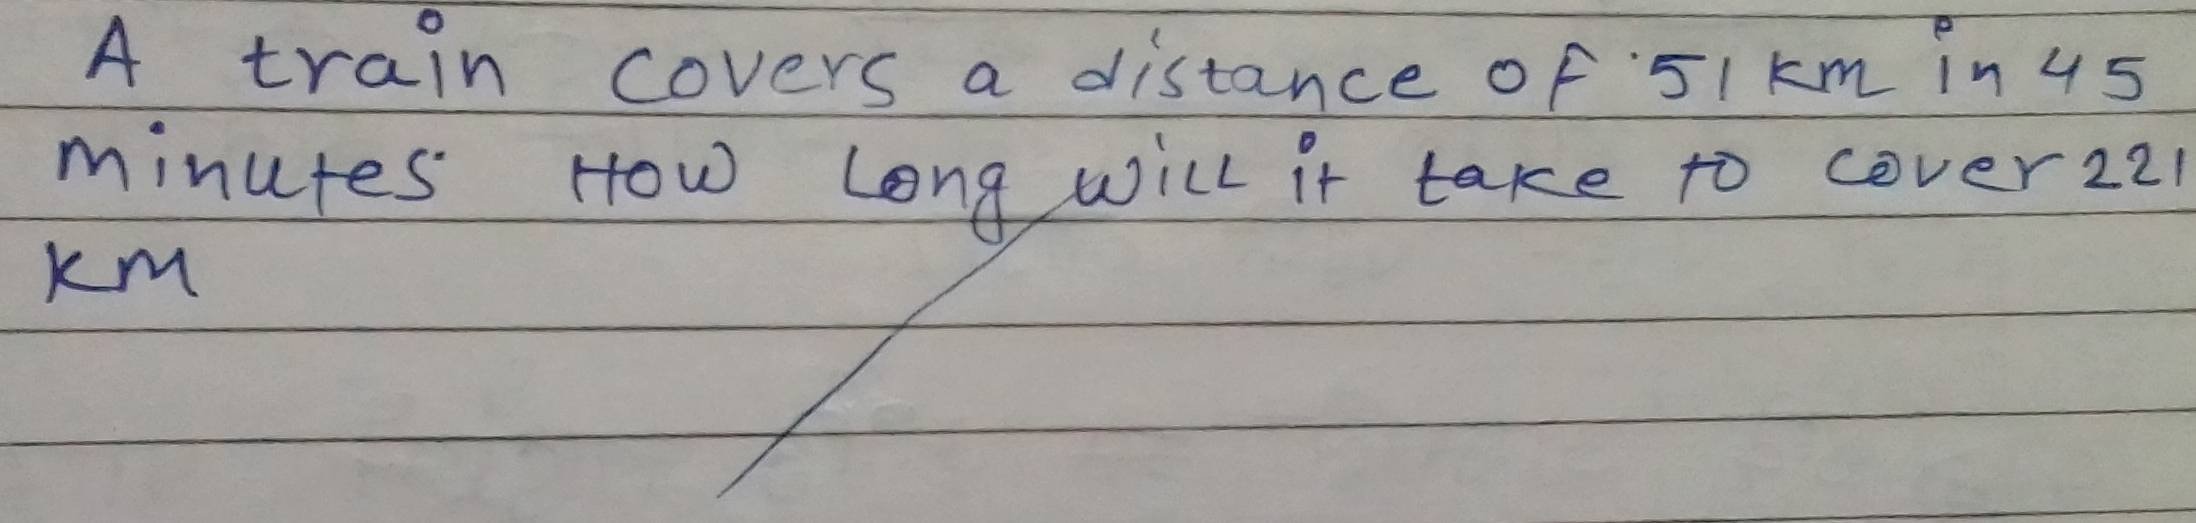 A train covers a distance of 51 km in 45
minutes How Long will it take to cover 221
km